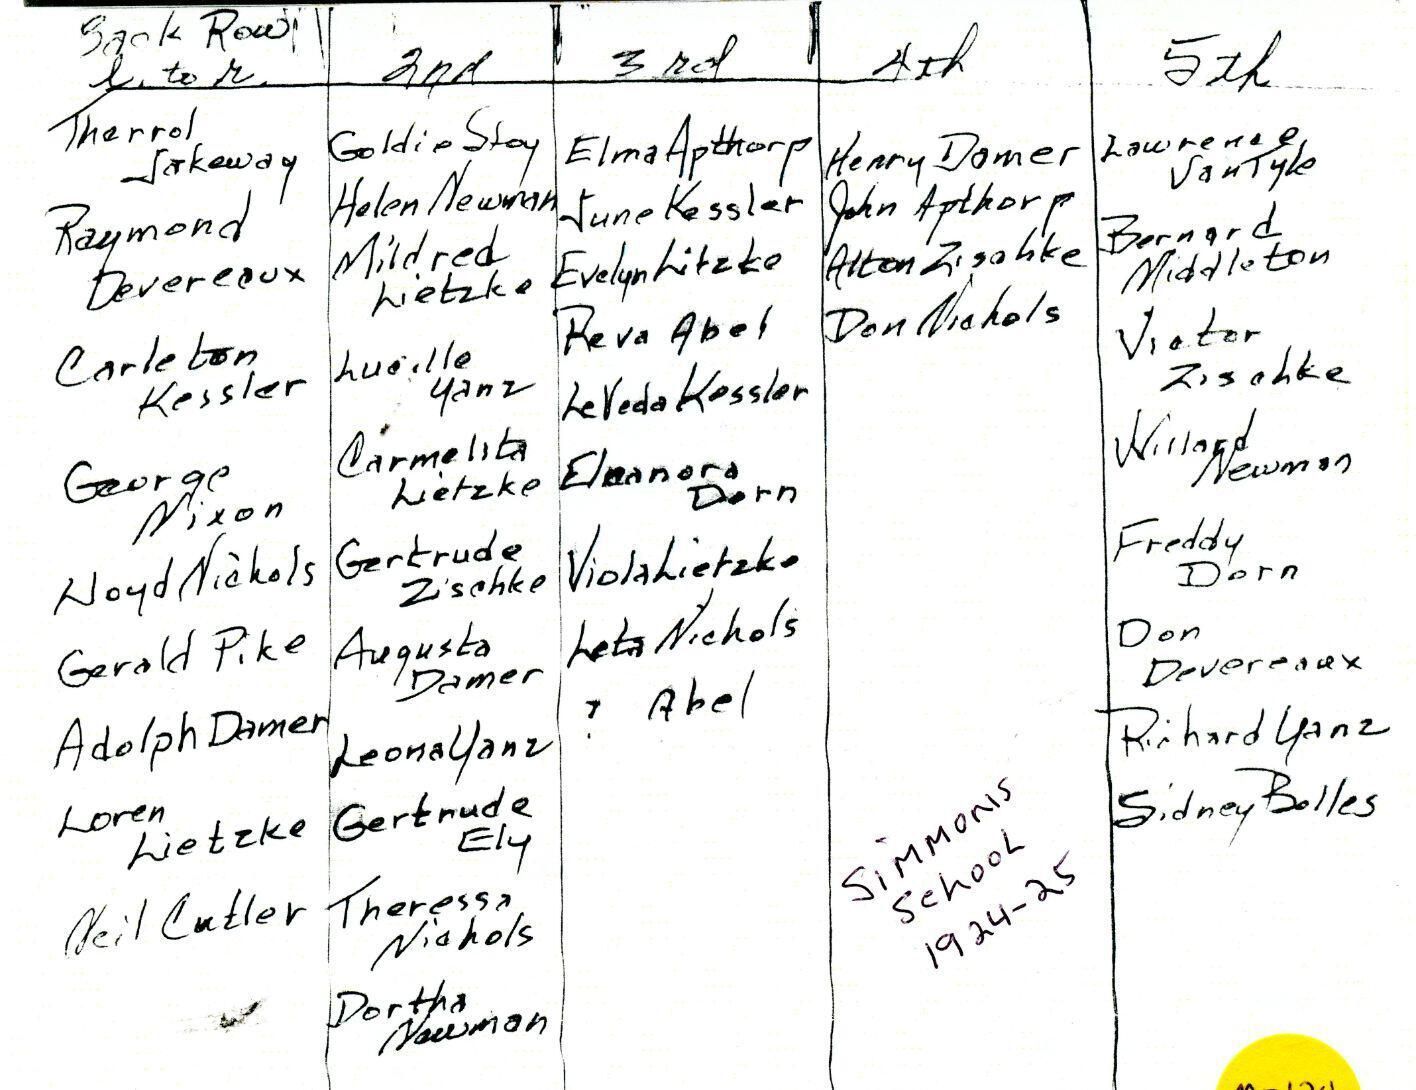 Back Row
l. to r.
Therrol
Jakeway
Raymond
Devereaux
Carleton
Kessler
George
Nixon
Lloyd Nichols
Gerald Pike
Adolph Damer
Loren
Lietzke
Neil Cutler
2nd
Goldie Stoy
Helen Newman
Mildred
Lietzke
Lucille
Yanz
Carmelita
Lietzke
Gertrude
Zischke
Augusta
Damer
Leona Yanz
Gertrude
Ely
Theressa
Nichols
Dortha
Newman
3rd
Elma Apthorp
June Kessler
Evelyn Litzke
Reva Abel
LeVeda Kessler
Eleanora
Dorn
Viola Lietzke
Leta Nichols
? Abel
4th
Henry Damer
John Apthorp
Alton Zischke
Don Nichols
Simmonis
School
1924-25
5th
Lawrence
VanTyle
Bernard
Middleton
Victor
Zischke
Willard
Newman
Freddy
Dorn
Don
Devereaux
Richard Yanz
Sidney Bolles